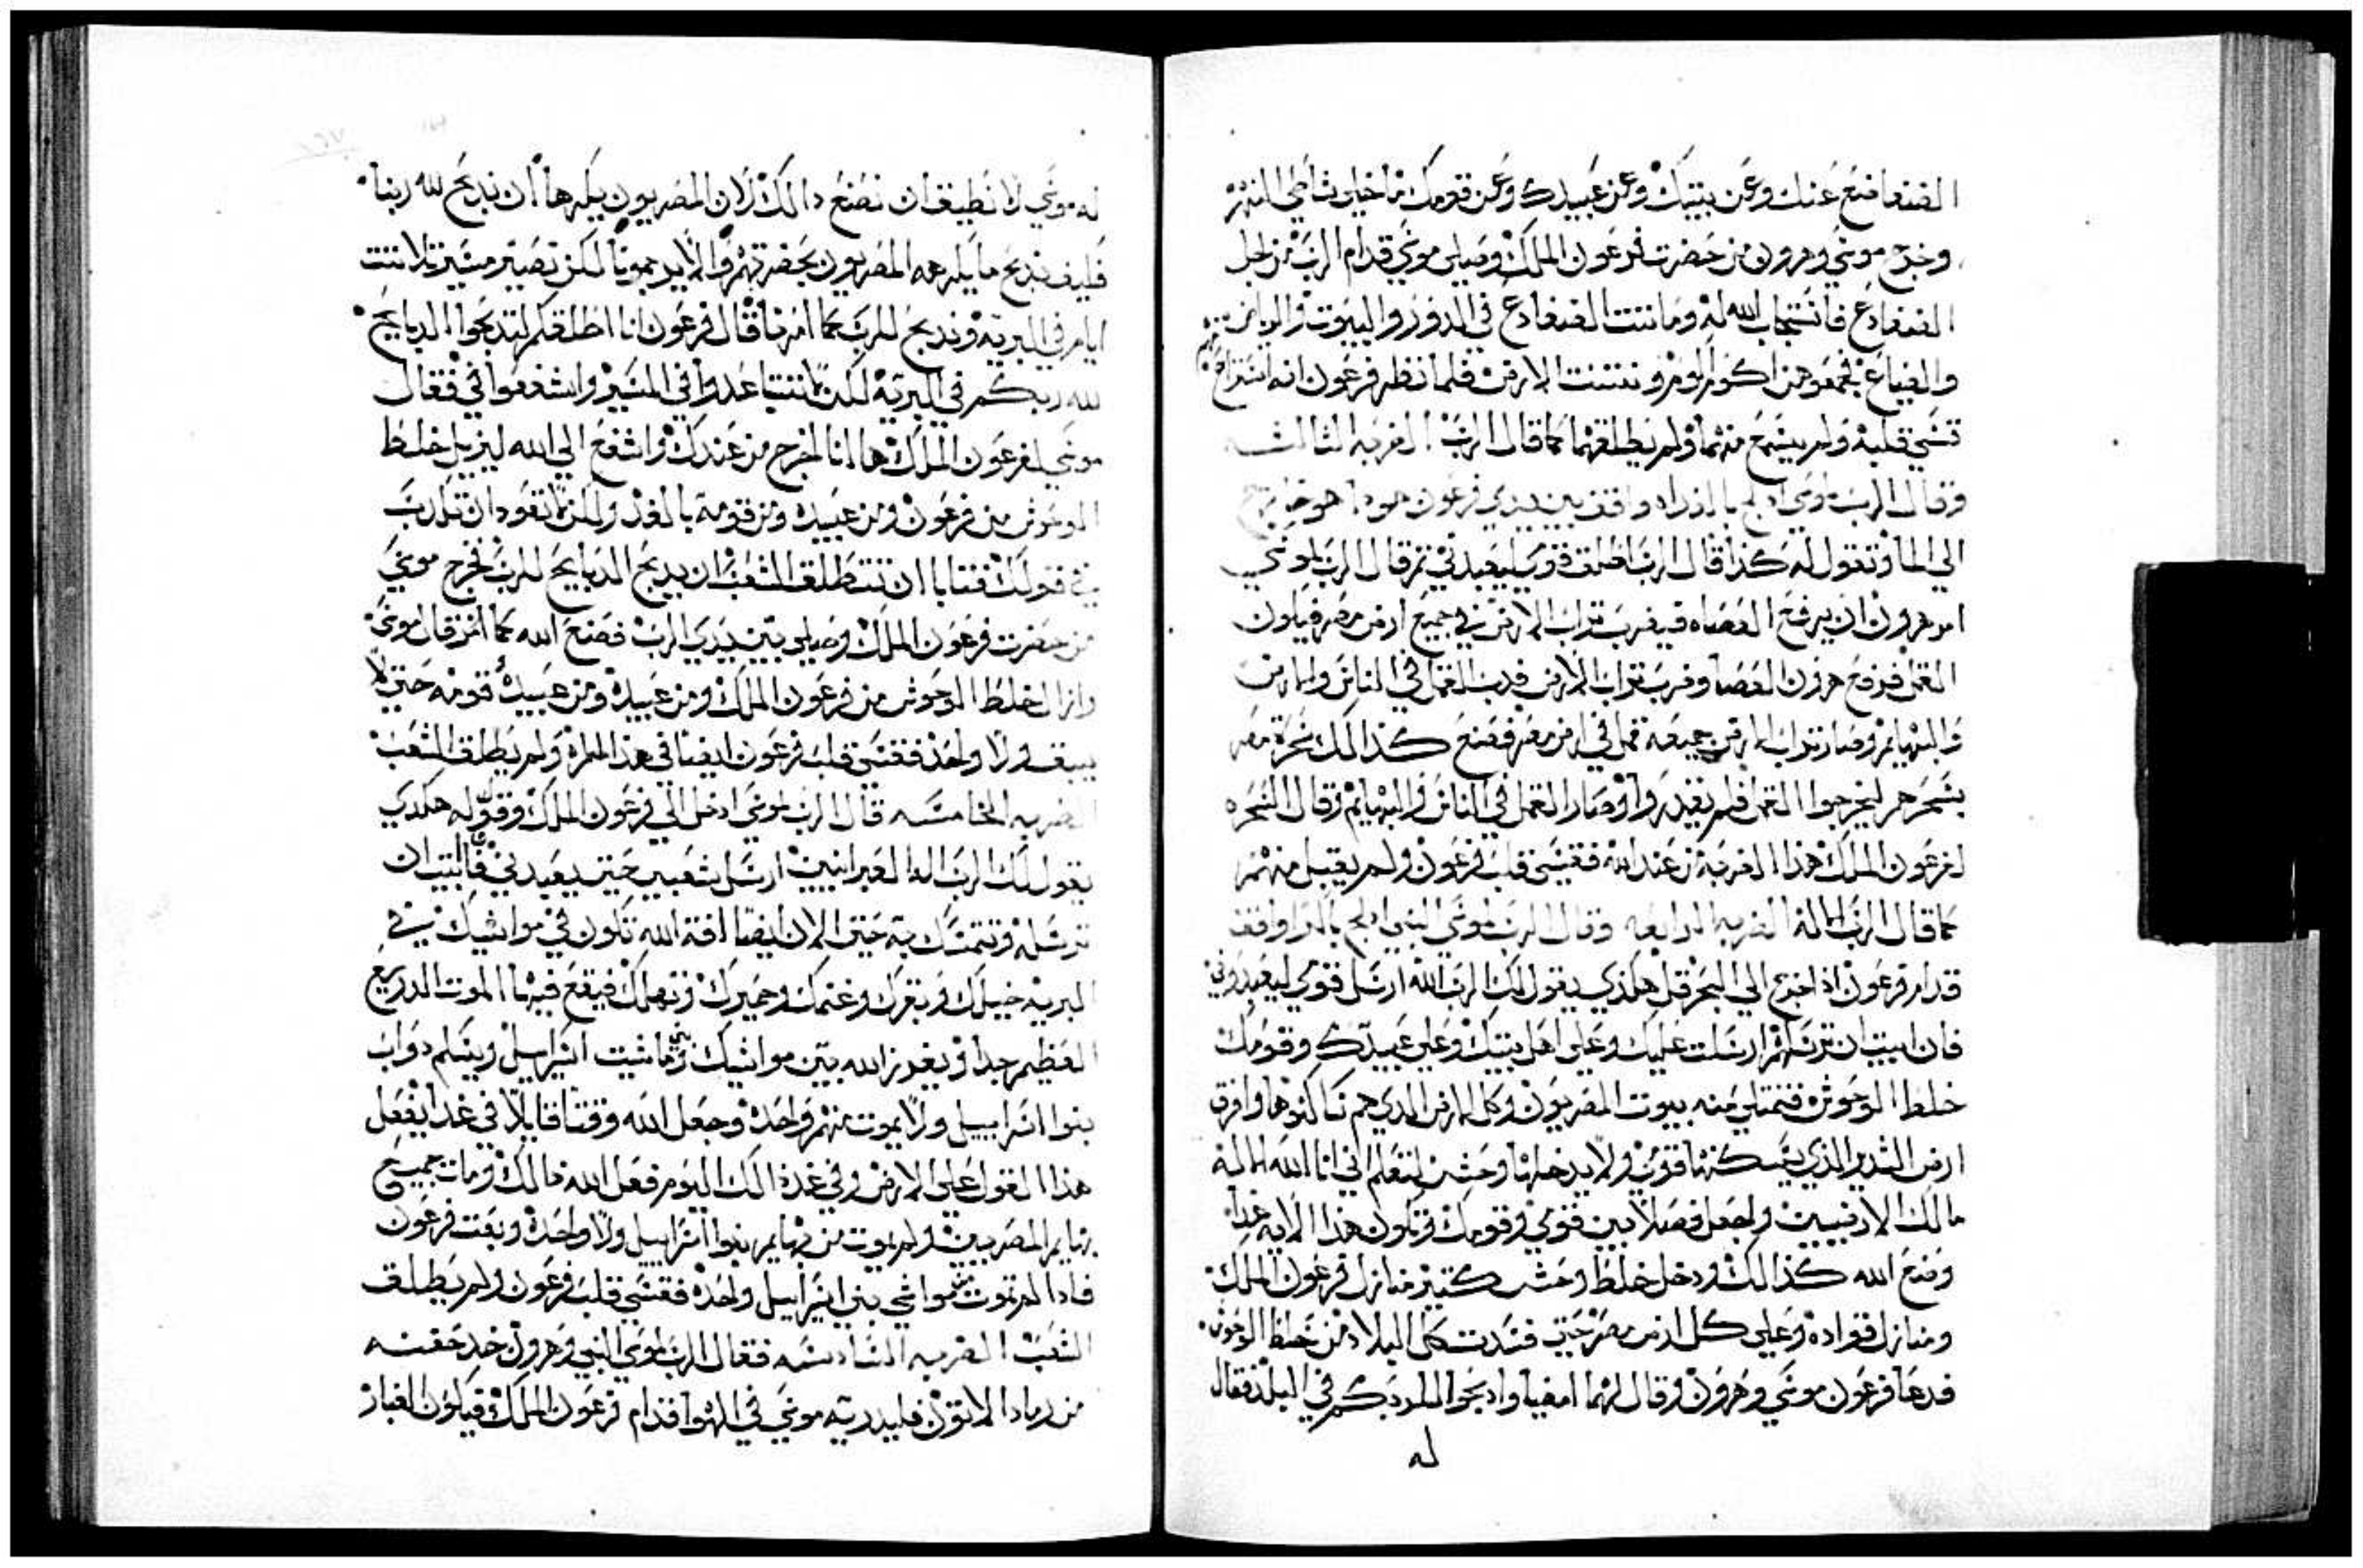 الضفادع عنك وعن بيتك وعن عبيدك وعن قومك ما خلي شاطي النهر
وخرج موسي وهرون من حضرت فرعون الملك وصلي موسي قدام الرب من اجل
الضفادع فاستجاب الله له وماتت الضفادع في الدور والبيوت والرياض
والضياع فجمعوهن اكوم اكوم ونتنت الارض فلما نظر فرعون انه استراح
قسي قلبه ولم يسمع منهما ولم يطلقهما كما قال الرب الضربه الثالثه
وقال الرب لموسي ادلج بالغداه واقف بين يدي فرعون هودا هو خارج
الي الما وتقول له كذا قال الرب اطلق قومي ليعبدني ثم قال الرب لموسي
امر هرون ان يرفع العصاه فيضرب تراب الارض في جميع ارض مصر فيكون
القمل فرفع هرون العصا وضرب تراب الارض فدب القمل في الناس والارض
والبهايم وصار تراب الارض جميعه قمل في ارض مصر فصنع كذالك سحرة مصر
بسحرهم ليخرجوا القمل فلم يقدروا وصار القمل في الناس والبهايم وقال السحره
لفرعون الملك هذا الضربه من عند الله فقسي قلب فرعون ولم يقبل منهم
كما قال الرب الاله الضربه الرابعه وقال الرب لموسي النبي ادلج باكرا واقف
قدام فرعون اذا خرج الي البحر قل هكذي يقول لك الرب الله ارسل قومي ليعبدوني
فان ابيت ان ترسلهم ارسلت عليك وعلي اهل بيتك وعلي عبيدك وقومك
خلط الوحوش فتمتلي منه بيوت المصريون وكل الارض الدي هم ساكنوها وافرق
ارض السدير الذي يسكنها قومي ولا يدخلها وحش لتعلم اني انا الله الاله
مالك الارضيين واجعل فصلا بين قومي وقومك وتكون هذا الايه غدا
وصنع الله كذالك ودخل خلط وحش كتير منازل فرعون الملك
ومنازل قواده وعلي كل ارض مصر حتي فسدت كل البلاد من خلط الوحوش
فدعا فرعون موسي وهرون وقال لهما امضيا وادبحوا لله ربكم في البلد فقال
له
له موسي لا نطيق ان نصنع دالك لان المصريون يكرها ان ندبح لله ربنا
فكيف ندبح ما يكرهه المصريون بحضرتهم والا يرجمونا لكن نصير مسير تلاتت
ايام في البريه وندبح للرب كما امرنا قال فرعون انا اطلقكم لتدبحوا الدبايح
لله ربكم في البريه لكن لا تتباعدوا في المسير واشفعوا في فقال
موسي لفرعون الملك ها انا اخرج من عندك واشفع الي الله ليزيل خلط
الوحوش من فرعون ومن عبيده ومن قومه بالغد ولكن لا تعود ان تكدب
في قولك فتابا ان تنتطلق الشعب ان يدبح الدبايح للرب فخرج موسي
من حضرت فرعون الملك وصلي بين يدي الرب فصنع الله كما امر قال موسي
وازال خلط الوحوش من فرعون الملك ومن عبيده ومن عبيد قومه حتي لا
يبق ولا واحد فقسي قلب فرعون ايضا في هذا المره ولم يطلق الشعب
الضربه الخامسه قال الرب لموسي ادخل الي فرعون الملك وقول له هكدي
يقول لك الرب اله العبرانيين ارسل شعبي حتي يعبدني فان ابيت ان
ترسله وتتمسك به حتي الان ايضا افة الله تكون في مواشيك في
البريه خيلك وبقرك وغنمك وحميرك وتهلك فيقع فيها الموت الدريع
العظيم جدا ويفرز الله بين مواشيك وماشيت بني اسراييل ويسلم دواب
بنوا اسراييل ولا يموت منهم واحد وجعل الله وقتا قايلا في غد ايفعل
هذا القول علي الارض وفي غد دالك اليوم فعل الله دالك ومات جميع
بهايم المصريين ولم يموت من بهايم بنوا اسراييل ولا واحده وبعت فرعون
فادا لم تموت من مواشي بني اسراييل واحده فقسي قلب فرعون ولم يطلق
الشعب الضربه السادسه فقال الرب لموسي النبي وهرون خد حفنه
من رماد الاتون فليدريه موسي في الهوا قدام فرعون الملك فيكون الغبار